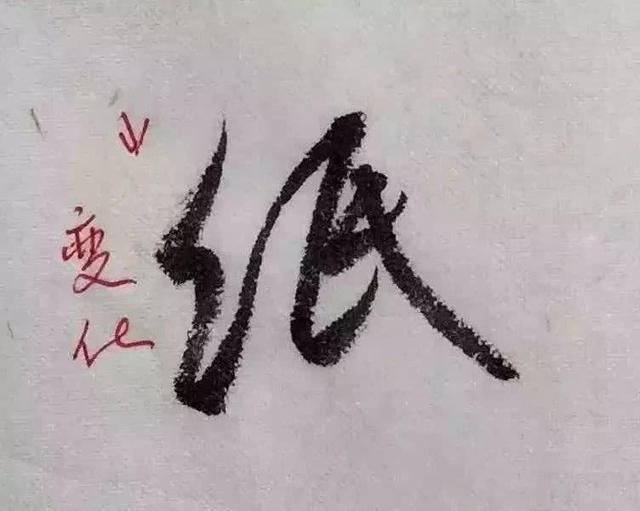 纸
变化